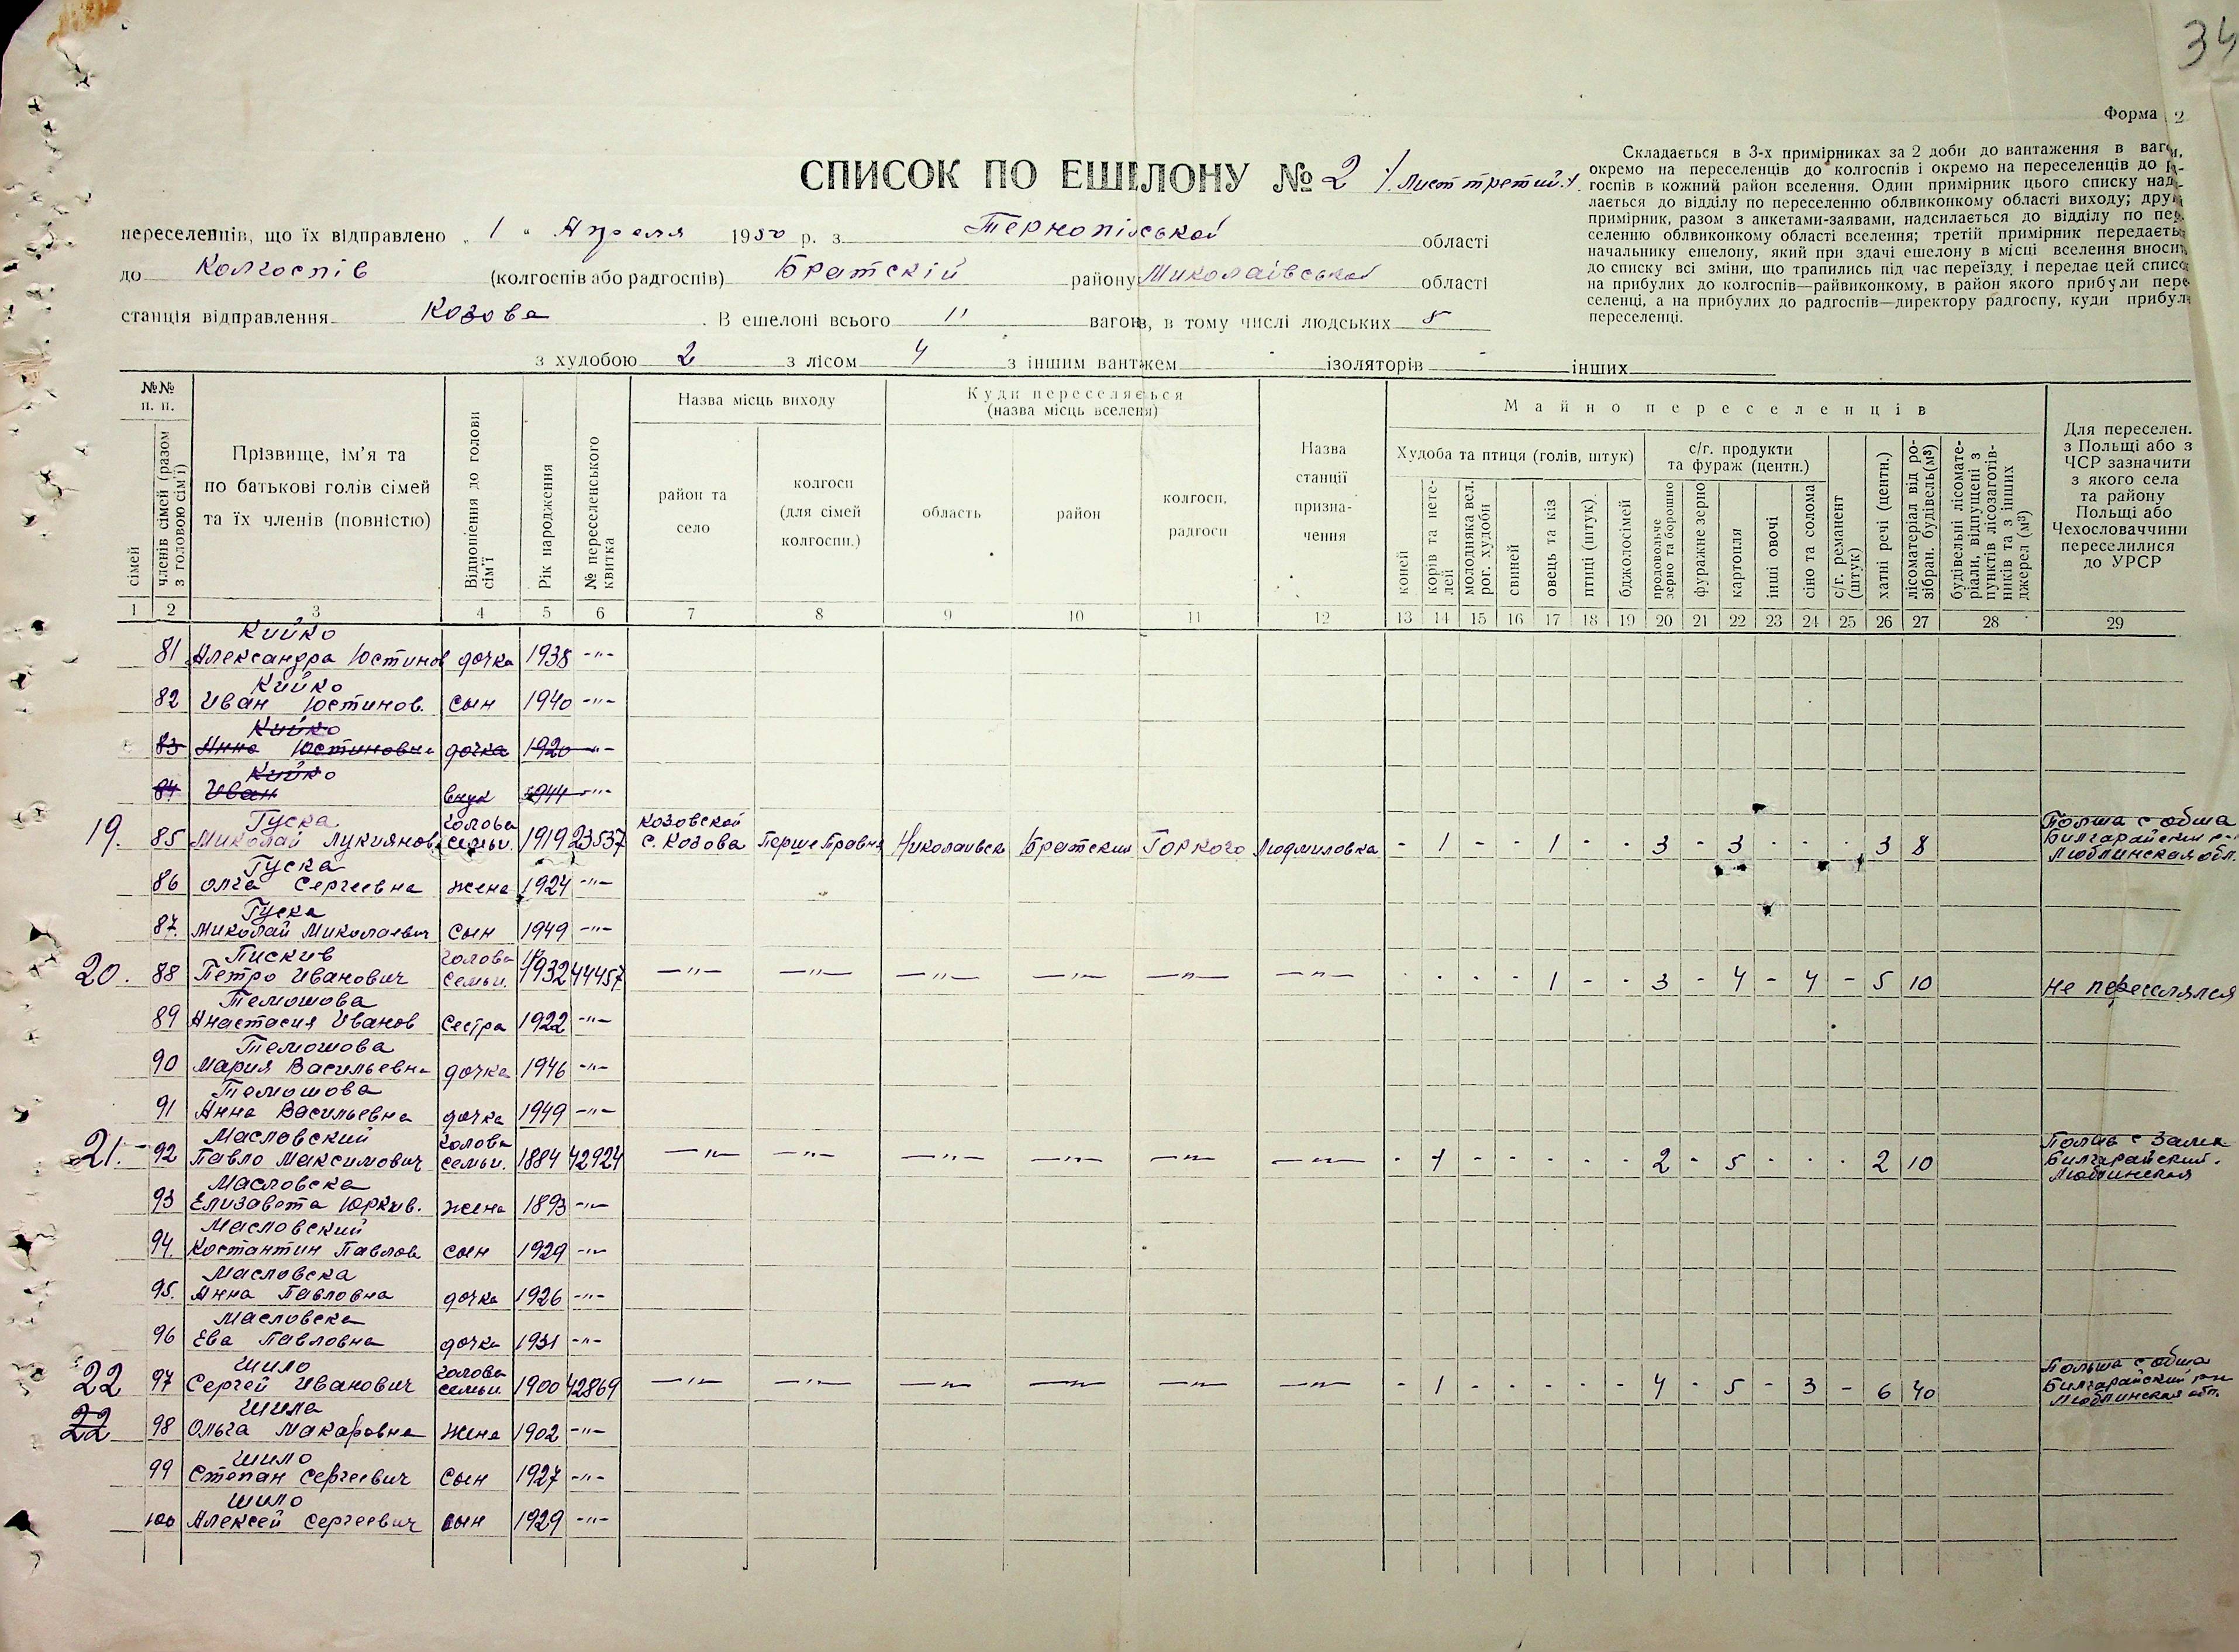 34
Форма 2
СПИСОК ПО ЕШЕЛОНУ № 2 /. Лист третий./.
Складається в 3-х примірниках за 2 доби до вантаження в ваго
окремо на переселенців до колгоспів і окремо на переселенців до
госпів в кожний район вселення. Один примірник цього списку
лається до відділу по переселенню облвиконкому області виходу;
примірник, разом з анкетами-заявами, надсилається до відділу по
селенню облвиконкому області вселення; третій примірник передається
начальнику ешелону, який при здачі ешелону в місці вселення вносить
до списку всі зміни, що трапились під час переїзду, і передає цей список
на прибулих до колгоспів—райвиконкому, в район якого прибули пере-
селенці, а на прибулих до радгоспів—директору радгоспу, куди прибули
переселенці.
переселенців, що їх відправлено „ 1 " Апреля 1950 р. з Тернопільської області
до Колгоспів (колгоспів або радгоспів) Братскій району Миколаівської області
станція відправлення Козова. В ешелоні всього 11 вагонів, в тому числі людських 5
з худобою 2 з лісом 4 з іншим вантажем - ізоляторів - інших
№№ п. п.
сімей
членів сімей (разом з головою сім'ї)
Прізвище, ім'я та по батькові голів сімей та їх членів (повністю)
Відношення до голови сім'ї
Рік народження
№ переселенського квитка
Назва місць виходу
район та село
колгосп (для сімей колгоспн.)
Куди переселяється (назва місць вселеня)
область
район
колгосп, радгосп
Назва станції призна-чення
Майно переселенців
Худоба та птиця (голів, штук)
коней
корів та нете-лей
молодняка вел. рог. худоби
свиней
овець та кіз
птиці (штук)
бджолосімей
с/г. продукти та фураж (центн.)
продовольче зерно та борошно
фуражне зерно
картопля
інші овочі
сіно та солома
с/г. реманент (штук)
хатні речі (центн.)
лісоматеріал від ро-зібран. будівель(м³)
будівельні лісомате-ріали, відпущені з пунктів лісозаготів-ників та з інших джерел (м³)
Для переселен. з Польщі або з ЧСР зазначити з якого села та району Польщі або Чехословаччини переселилися до УРСР
1 2 3 4 5 6 7 8 9 10 11 12 13 14 15 16 17 18 19 20 21 22 23 24 25 26 27 28 29
Кийко
81 Александра Юстинов дочка 1938 -"-
Кийко
82 Иван Юстинов. сын 1940 -"-
Кийко
83 Анна Юстиновна дочка 1920 -"-
Кийко
84 Иван внук 1944 -"-
Гуска голова Козовской Польша с обша
19. 85 Миколай Лукиянов. семьи. 1919 23537 с. Козова Перше Травня Николаевск Братский Горкого Людмиловка - 1 - - 1 - - 3 - 3 - - - 3 8 Билгарайский р-н
Люблинская обл.
Гуска
86 Олга Сергеевна жена 1924 -"-
Гуска
87. Миколай Миколаевич сын 1949 -"-
Пискив голова
20. 88 Петро Иванович семьи. 1932 44457 -"- -"- -"- -"- -"- -"- - - - - 1 - - 3 - 4 - 4 - 5 10 не переселялся
Темошова
89 Анастасия Иванов сестра 1922 -"-
Темошова
90 Мария Васильевна дочка 1946 -"-
Темошова
91 Анна Васильевна дочка 1949 -"-
Масловский голова Польша с Замх
21. 92 Павло Максимович семьи. 1884 42924 -"- -"- -"- -"- -"- -"- - 1 - - - - - 2 - 5 - - - 2 10 Билгарайский.
Люблинская
Масловска
93 Елизавета Юркив. жена 1893 -"-
Масловский
94. Костантин Павлов сын 1929 -"-
Масловска
95. Анна Павловна дочка 1926 -"-
Масловска
96 Ева Павловна дочка 1931 -"-
Шило голова Польша с обша
22 97 Сергей Иванович семьи 1900 42869 -"- -"- -"- -"- -"- -"- - 1 - - - - - 4 - 5 - 3 - 6 40 Билгарайский р-н
Люблинская обл.
Шила
22 98 Ольга Макаровна жена 1902 -"-
Шило
99 Степан Сергеевич сын 1927 -"-
Шило
100 Алексей Сергеевич сын 1929 -"-